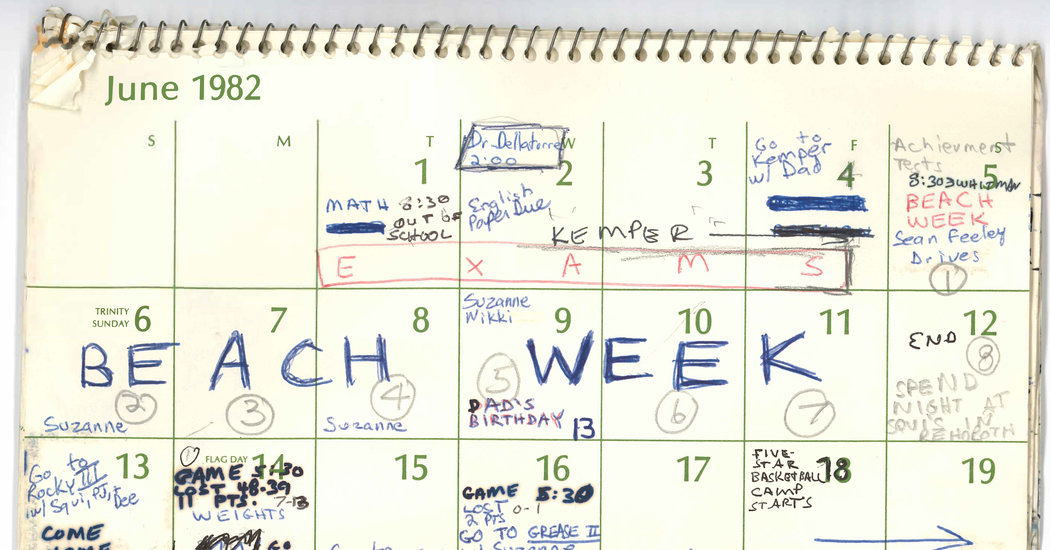 June 1982
S
M
T
W
T
F
S
1
MATH 8:30
OUT OF
SCHOOL
Dr. Dellatorre
2:00
2
English
Paper Due
3
KEMPER
Go to
Kemper
w/ Dad
4
Achievment
Tests
5
8:30
BEACH
WEEK
Sean Feeley
Drives
1
E X A M S
TRINITY
SUNDAY 6
7
8
Suzanne
Nikki
9
10
11
12
BEACH WEEK
END
2
3
4
5
6
7
8
Suzanne
Suzanne
DAD'S
BIRTHDAY 13
SPEND
NIGHT AT
SQUI'S IN
REHOBOTH
13
Go to
Rocky III
w/ Squi, PJ,
Dee
COME
HOME
FLAG DAY 14
GAME 5:30
LOST 48-39
11 PTS. 7-13
WEIGHTS
GO
15
Go to
16
GAME 5:30
LOST 0-1
2 PTS
GO TO GREASE II
w/ Suzanne
17
18
FIVE-
STAR
BASKETBALL
CAMP
STARTS
19